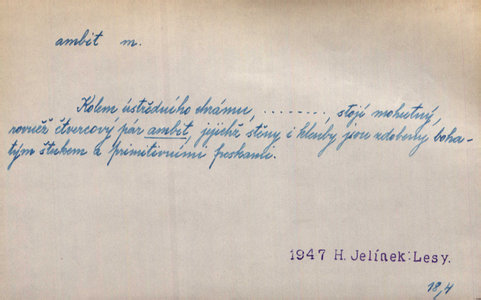 ambit m.
Kolem ústředního chrámu, ........, stojí mohutný,
rovněž čtvercový pár ambit, jejichž stěny i klenby jsou zdobeny boha-
tým štukem a primitivními freskami.
1947 H. Jelínek: Lesy.
18/4